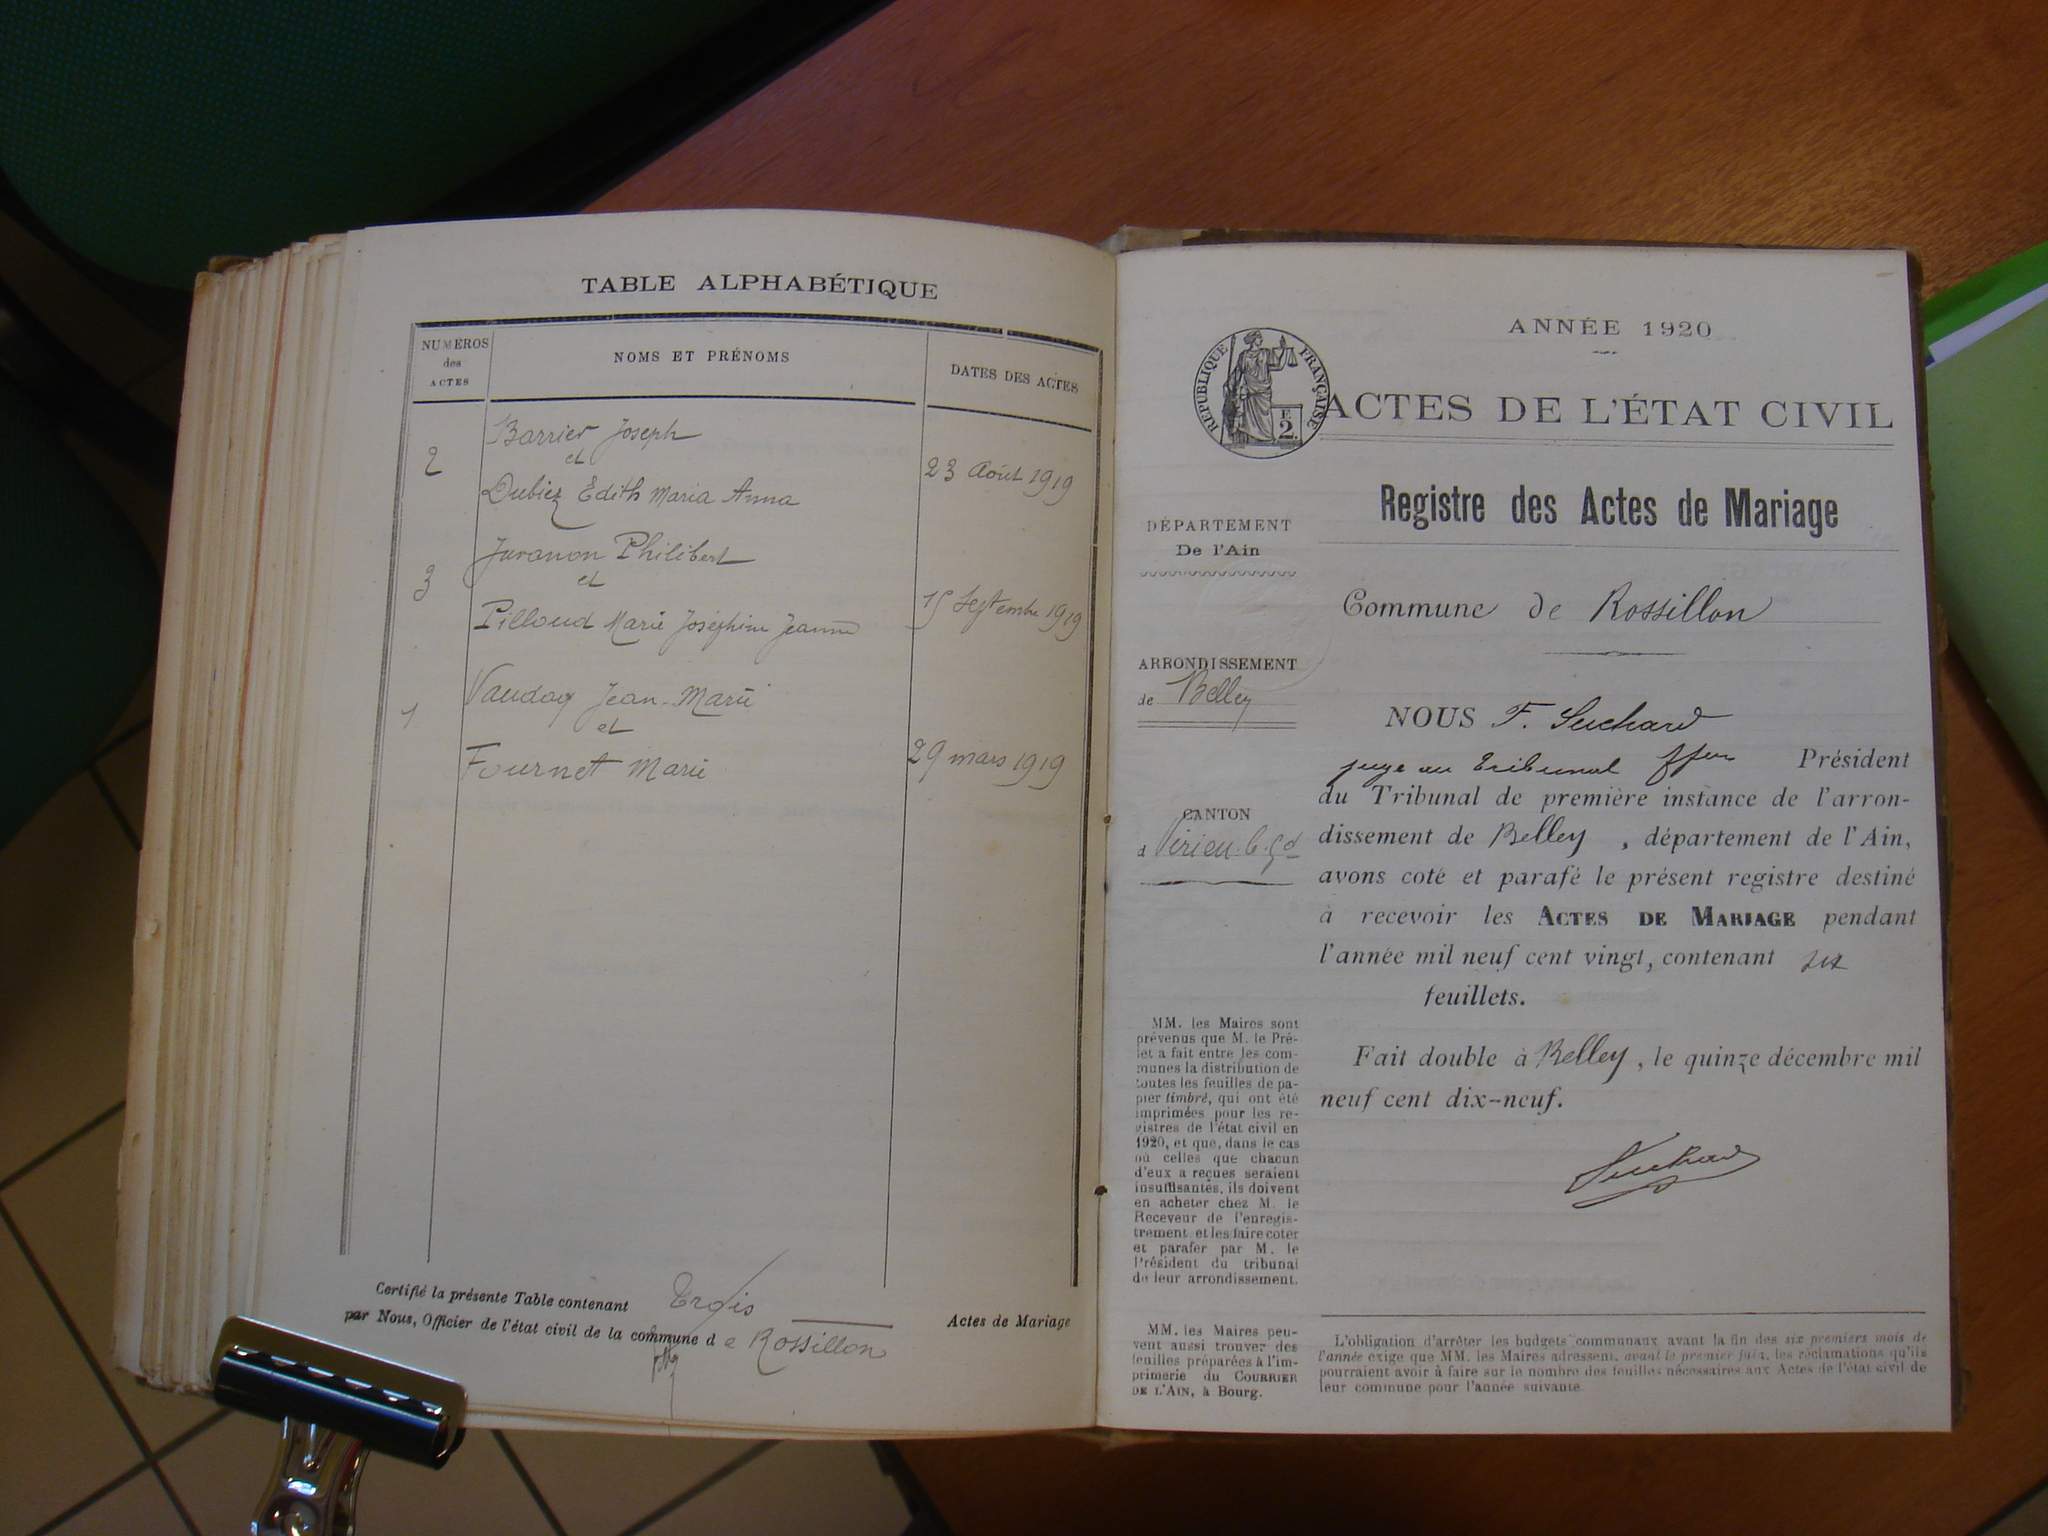 TABLE ALPHABÉTIQUE
NUMÉROS
des
ACTES
NOMS ET PRÉNOMS
DATES DES ACTES
2
Barrier Joseph
et
Dubiez Edith Maria Anna
23 Août 1919
3
Juranon Philibert
et
Pilloud Marie Joséphine Jeanne
15 Septembre 1919
1
Vauday Jean-Marie
et
Fournet Marie
29 mars 1919
Certifié la présente Table contenant trois Actes de Mariage
par Nous, Officier de l'état civil de la commune de Rossillon
ANNÉE 1920
RÉPUBLIQUE FRANÇAISE
F.
2.
ACTES DE L'ÉTAT CIVIL
Registre des Actes de Mariage
DÉPARTEMENT
De l'Ain
Commune de Rossillon
ARRONDISSEMENT
de Belley
CANTON
d Virieu-le-Gd
NOUS F. Suchard
juge au Tribunal ffon Président
du Tribunal de première instance de l'arron-
dissement de Belley, département de l'Ain,
avons coté et parafé le présent registre destiné
à recevoir les ACTES DE MARIAGE pendant
l'année mil neuf cent vingt, contenant six
feuillets.
Fait double à Belley, le quinze décembre mil
neuf cent dix-neuf.
Suchard
MM. les Maires sont
prévenus que M. le Pré-
fet a fait entre les com-
munes la distribution de
toutes les feuilles de pa-
pier timbré, qui ont été
imprimées pour les re-
gistres de l'état civil en
1920, et que, dans le cas
où celles que chacun
d'eux a reçues seraient
insuffisantes, ils doivent
en acheter chez M. le
Receveur de l'enregis-
trement et les faire coter
et parafer par M. le
Président du tribunal
de leur arrondissement.
MM. les Maires peu-
vent aussi trouver des
feuilles préparées à l'im-
primerie du COURRIER
DE L'AIN, à Bourg.
L'obligation d'arrêter les budgets communaux avant la fin des six premiers mois de
l'année exige que MM. les Maires adressent, avant le premier juin, les réclamations qu'ils
pourraient avoir à faire sur le nombre des feuilles nécessaires aux Actes de l'état civil de
leur commune pour l'année suivante.